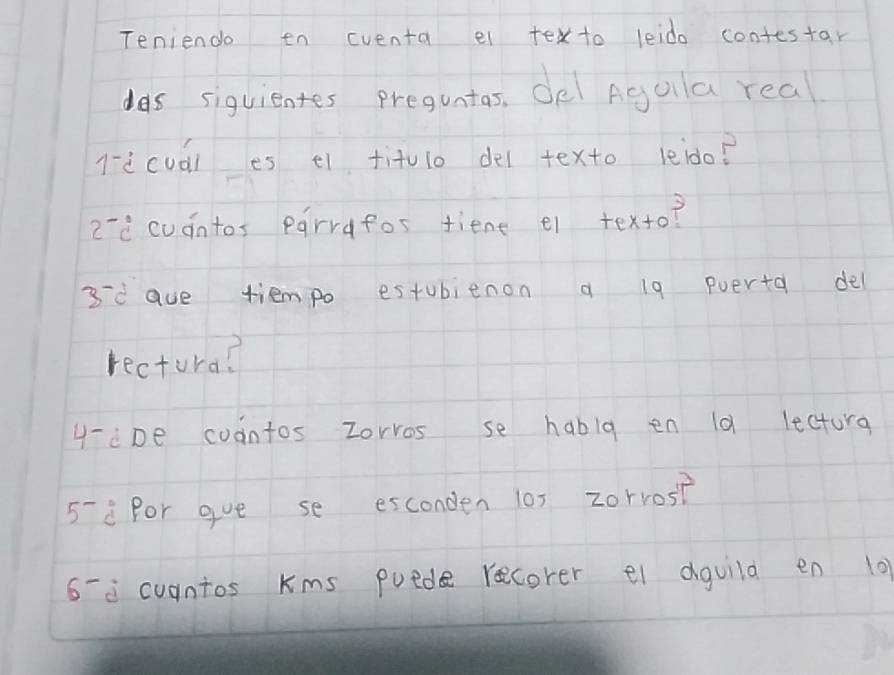 Teniendo en cuenta el texto leido contestar
las siguientes preguntas. del Aguila real.
1-¿cuál es el titulo del texto leido?
2-¿cuántos párrafos tiene el texto?
3-¿que tiempo estubienon a la puerta del
rectura?
4-¿De cuántos zorros se habla en la lectura
5-¿Por que se esconden los zorros?
6-¿cuantos Kms puede recorer el aguila en la